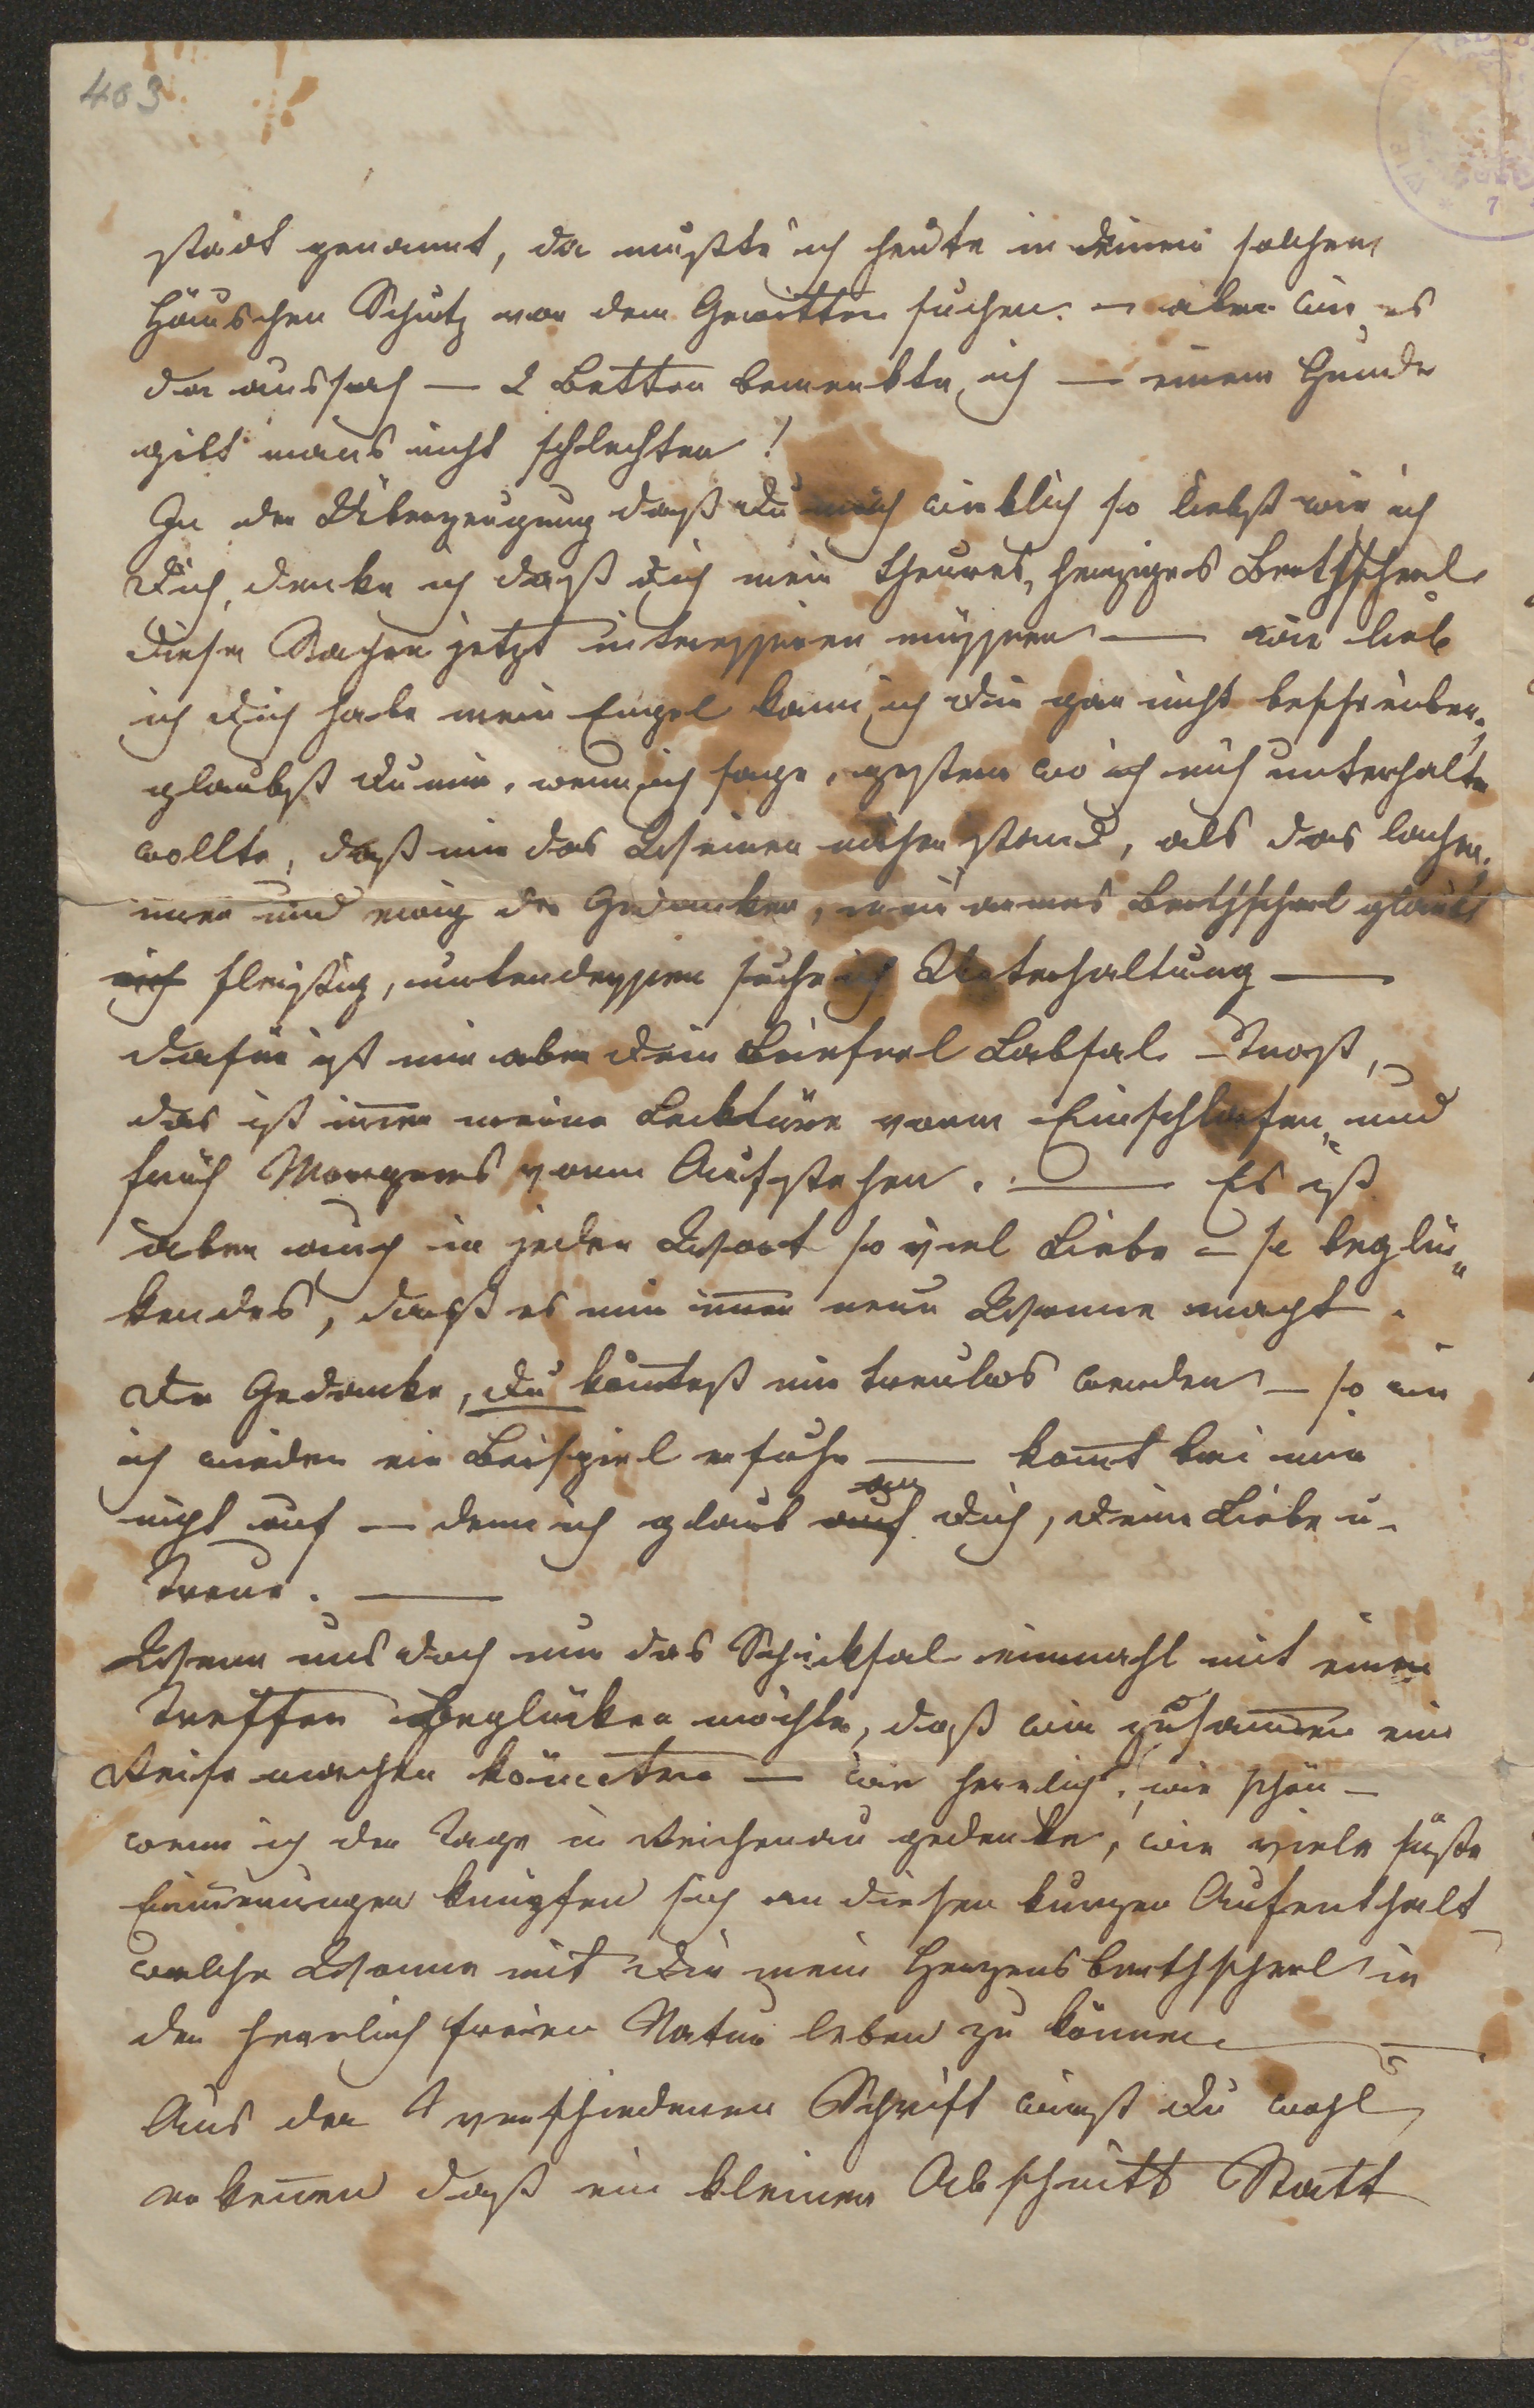 403
stadt genannt, da mußte ich heute in einem solchem
Häuschen Schutz vor dem Gewitter suchen. – aber wie es
da aussah — 2 Betten bemerkte ich — einem Hunde
gibt mans nicht schlechter!
In der Überzeugung daß Du mich wirklich so liebst wie ich
Dich, denke ich daß Dich mein theures, herziges Berthscherl
diese Sachen jetzt interessiren müssen — wie lieb
ich Dich habe mein Engel kann ich Dir gar nicht beschreiben,
glaubst Du mir, wenn ich sage, gestern wo ich mich unterhalten
wollte, daß mir das Weinen näher stand, als das lachen.
immer und ewig der Gedanken, mein armes Berthscherl glaubt
mich fleißig, unterdessen suche ich Unterhaltung —
dafür ist mir aber Dein Brieferl Labsal – Trost,
das ist immer meine Lecktüre vorm Einschlafen, und
früh Morgens vorm Aufstehen. — Es ist
aber auch in jeden Wort so viel Liebe – so beglü„
kendes, daß es mir immer neue Wonne macht.
Der Gedanke, Du könntest mir treulos werden – so wie
ich wieder ein Beispiel erfuhr — kommt bei mir
nicht auf — denn ich glaub auf an Dich, Deine Liebe u.
Treue. —
Wenn uns doch nur das Schicksal einmahl mit einen
Treffer beglücken möchte, daß wir zusammen eine
Reise machen könnten — wie herrlich, wie schön –
wenn ich der Tage in Reichenau gedenke, wie viele süße
Erinnerungen knüpfen sich an diesen kurzen Aufenthalt
welche Wonne mit Dir mein Herzensberthscherl in
der herrlich freien Natur leben zu können —
Aus der verschiedenen Schrift wirst Du wohl
erkennen daß ein kleiner Abschnitt Statt